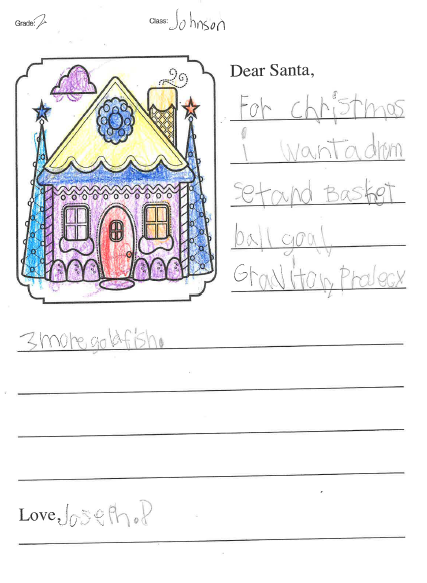 Grade: 2 Class: Johnson
Dear Santa,
For christmas
i want a drum
set and Basket
ball goal,
Gravitary
3 more goldfish.
Love, Joseph.P